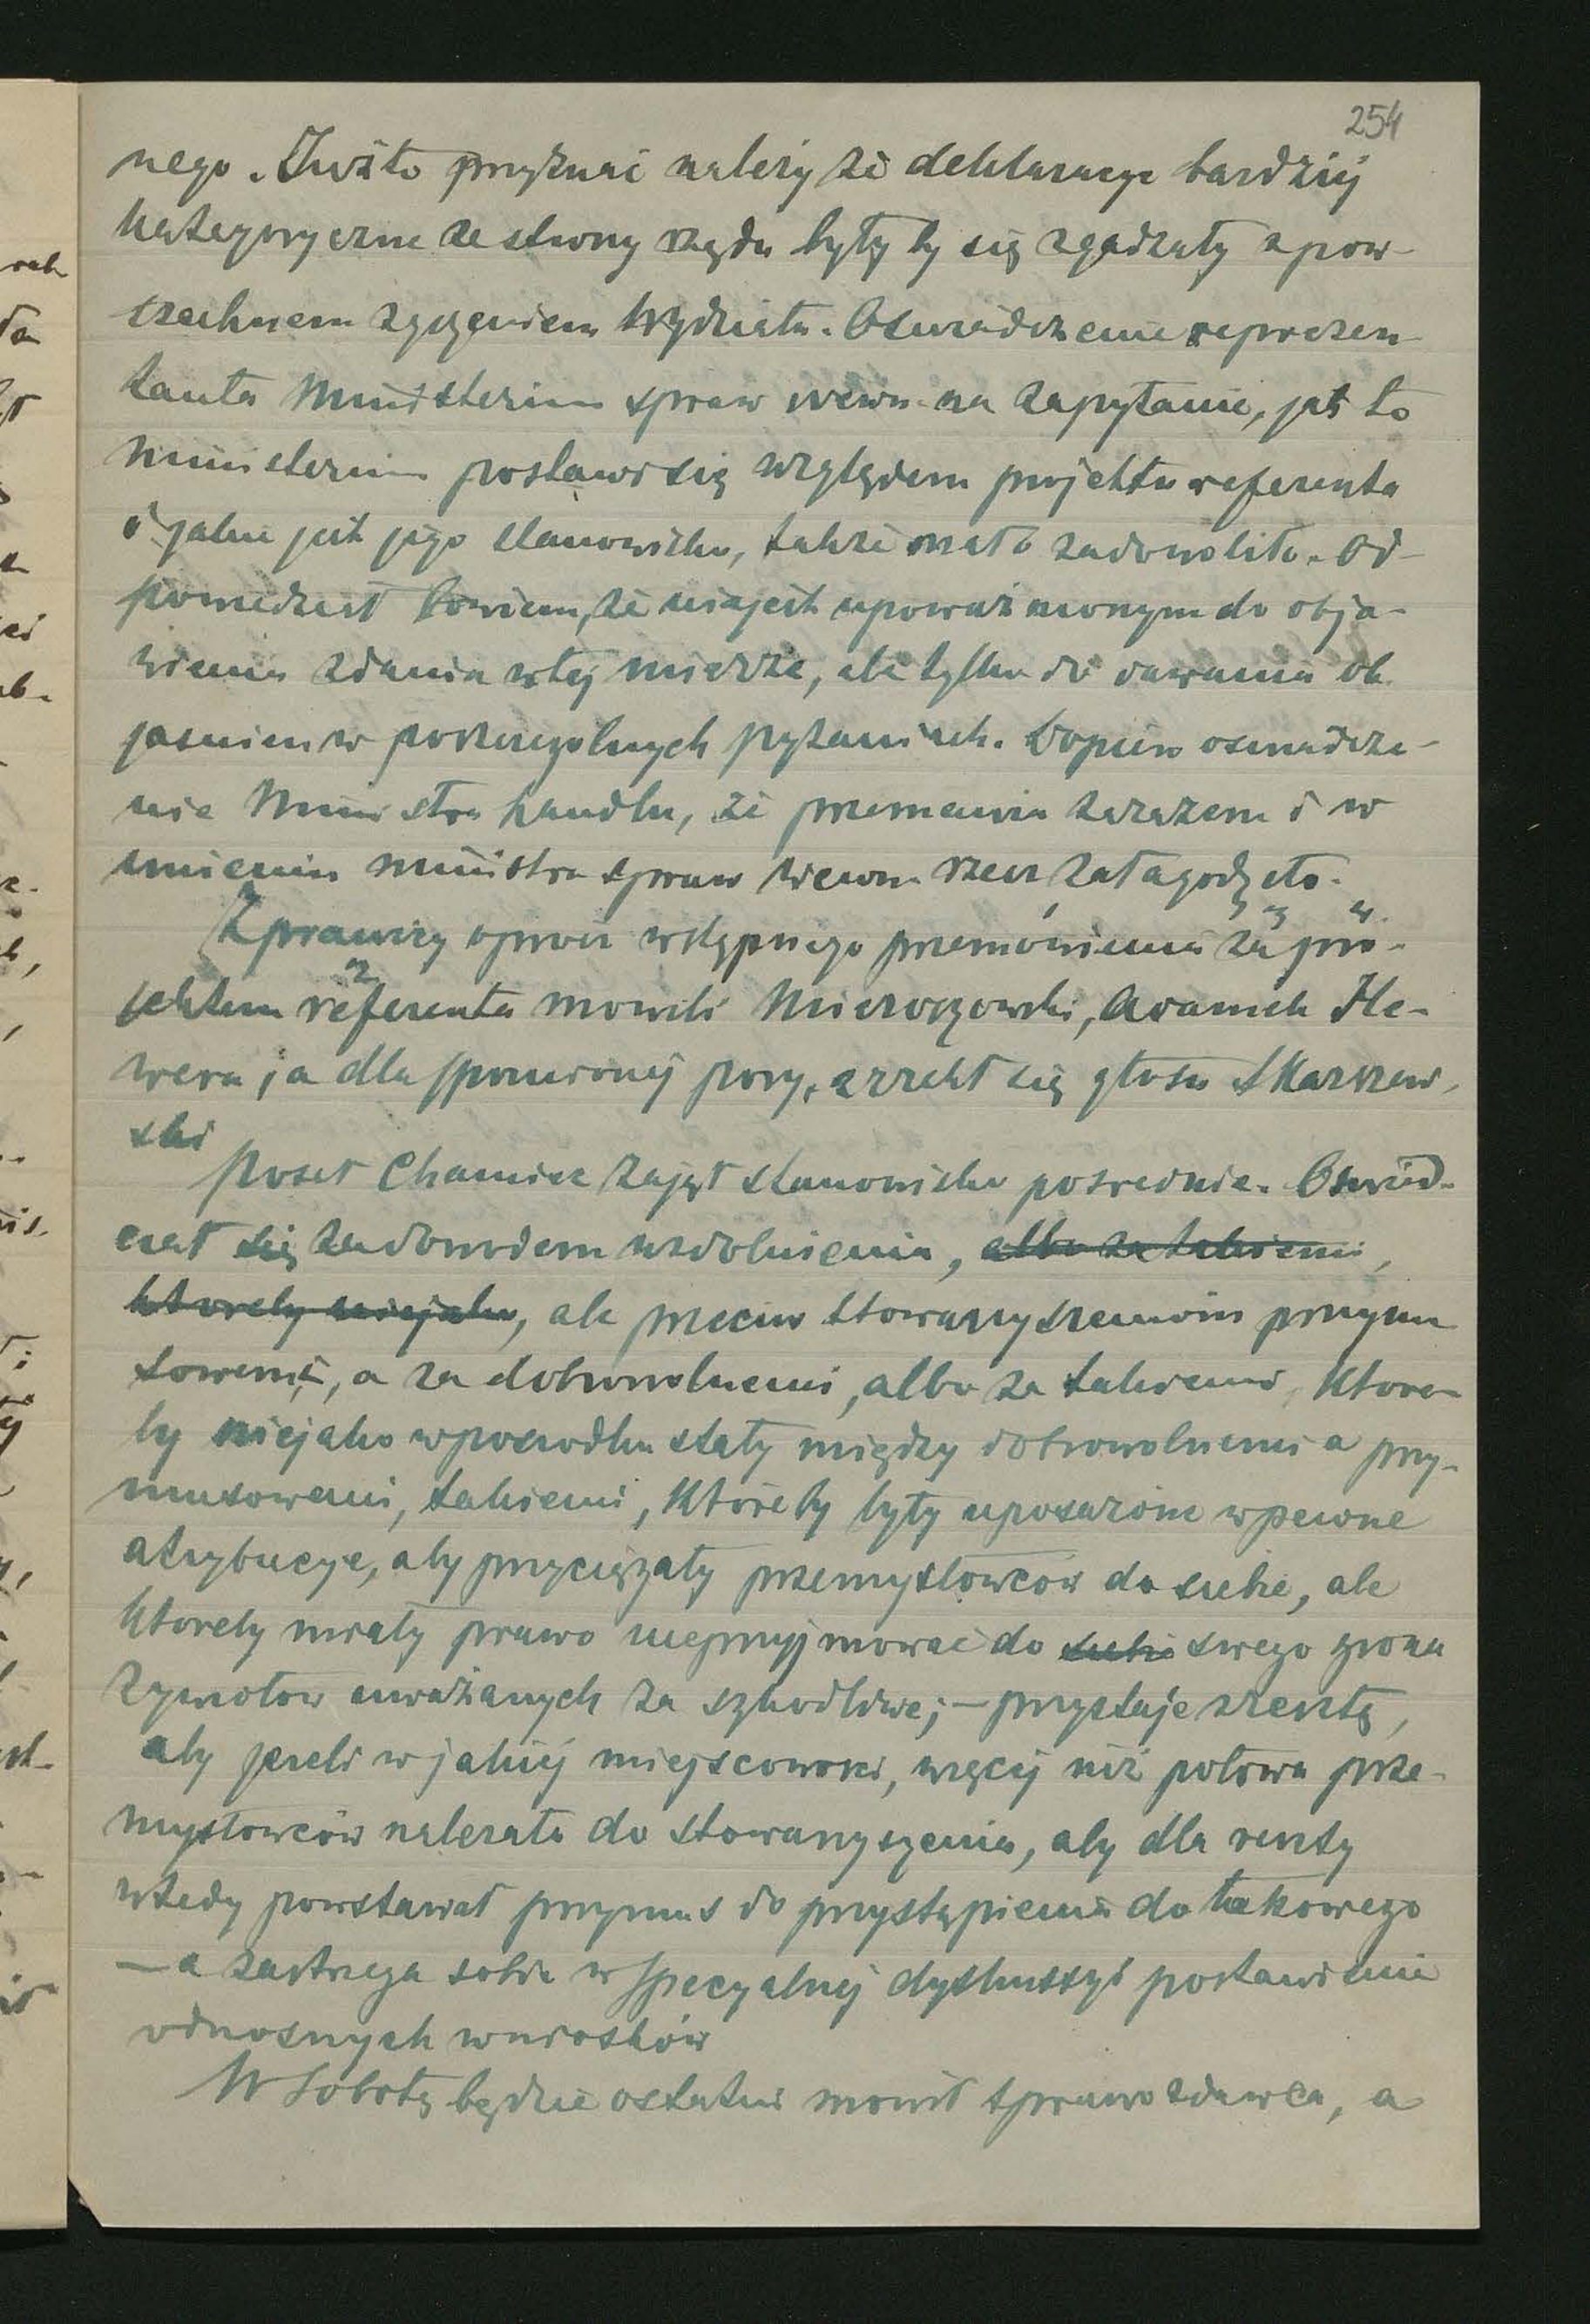 254
nego. Zwszto przyznać należy że deklaracye bardziej
kategoryczne ze strony rządu byłyby się zgadzały z pow-
szechnem życzeniem Wydziału. Oswiadczenie reprezen-
tanta Ministerium spraw wewn. na zapytanie, jak to
ministerium postawi się względem projektu referenta
i jakie jest jego stanowisko, także mało zadowoliło. Od-
powiedział bowiem, że nie jest upoważnionym do obja-
wienia zdania w tej mierze, ale tylko do dawania ob-
jasnien w poszczególnych pytaniach. Dopiero oswiadcze-
nie Ministra handlu, że przemawia zarazem i w
imieniu ministra spraw wewn. rzecz załagodziło.
Z prawicy oprócz wstępnego przemówienia za pro-
jektem referenta mowili Mieroszowski, Adamek He-
wera, a dla spoznionej pory, zrzekł się głosu Skarszew-
ski
Poseł Chamiec zajął stanowisko posrednie. Oswiad-
czał się za dowodem uzdolnienia, albo za takiemi,
któreby niejako, ale przeciw stowarzyszeniom przymu
sowemi, a za dobrowolnemi, albo za takiemi, które-
by niejako w posrodku stały między dobrowolnemi a przy-
musowemi, takiemi, któreby były uposażone w pewne
atrybucye, aby przyciągały przemysłowców do siebie, ale
któreby miały prawo nieprzyjmować do siebie swego grona
żywiołow uważanych za szkodliwe; — przystaje zresztą,
aby jeżeli w jakiej miejscowosci, więcej niż połowa prze-
mysłowców należała do stowarzyszenia, aby dla reszty
wtedy powstawał przymus do przystąpienia do takowego
— a zastrzega sobie w specyalnej dyskussyi postawienie
odnosnych wniosków
W Sobotę będzie ostatni mowił sprawozdawca, a